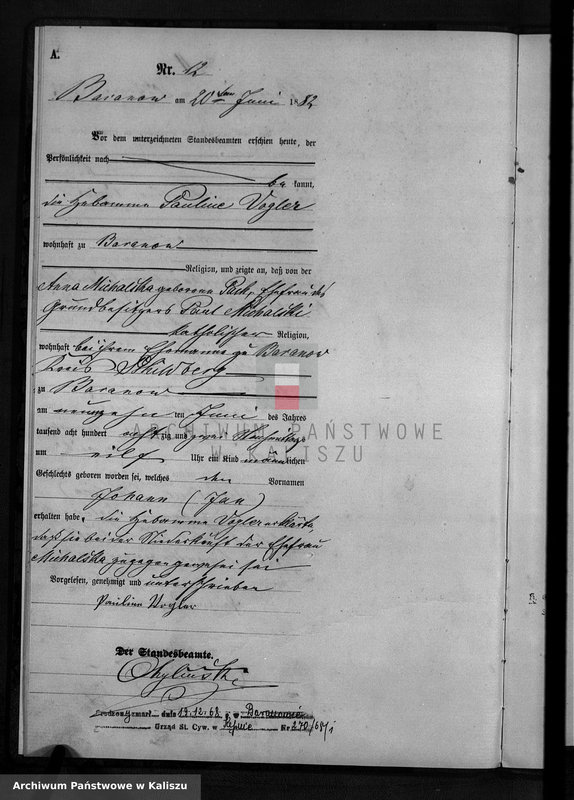 A.
Nr. 12
Baranow am 20ten Juni 1882
Vor dem unterzeichneten Standesbeamten erschien heute, der
Persönlichkeit nach
bekannt,
die Hebamme Pauline Vogler
wohnhaft zu Baranow
Religion, und zeigte an, daß von der
Anna Michalska geborene Ehefrau des
Grundbesitzers Paul Michalski
katholischer Religion,
wohnhaft bei ihrem Ehemanne zu Baranow
Kreis Schildberg
zu Baranow
am neunzehn ten Juni des Jahres
tausend acht hundert achtzig und zwei Nachmittags
um elf Uhr ein Kind männlichen
Geschlechts geboren worden sei, welches den Vornamen
Johann (Jan)
erhalten habe, die Hebamme Vogler erklärte,
daß sie bei der Niederkunft der Ehefrau
Michalska zugegen gewesen sei
Vorgelesen, genehmigt und unterschrieben
Pauline Vogler
Der Standesbeamte.
zmarł dnia 19.12.68 r. w Baranowie
Urząd St. Cyw. w Kępnie Nr 270/68
ARCHIWUM PAŃSTWOWE
W KALISZU
Archiwum Państwowe w Kaliszu